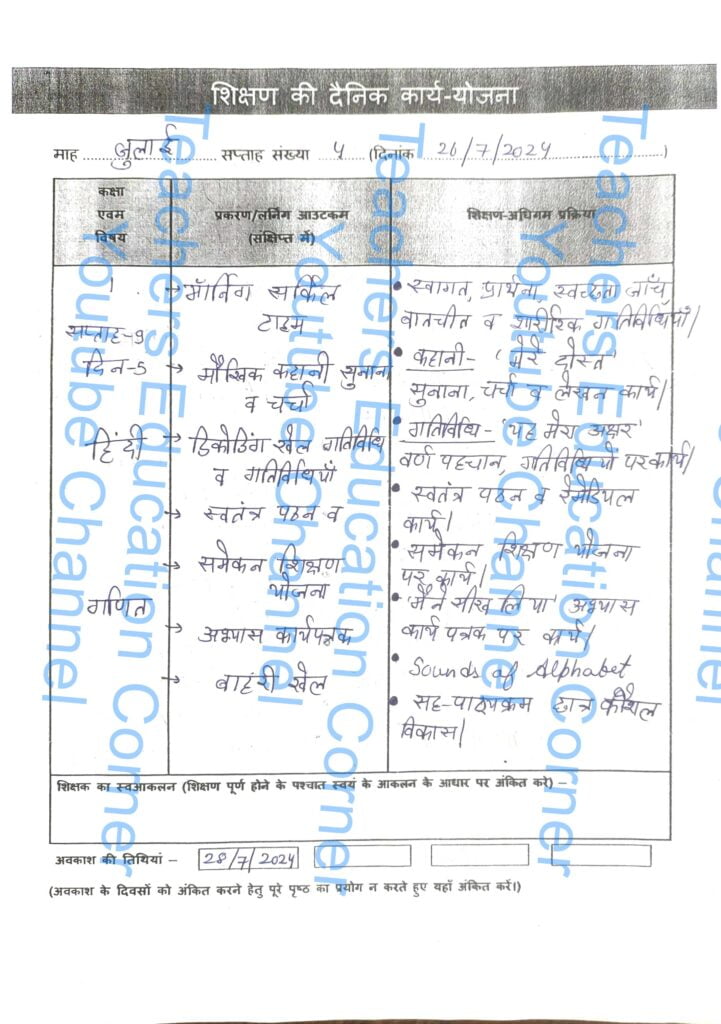 शिक्षण की दैनिक कार्य-योजना
माह जुलाई सप्ताह संख्या 4 (दिनांक 26/7/2024)
कक्षा
एवम
विषय
प्रकरण/लर्निंग आउटकम
(संक्षिप्त में)
शिक्षण-अधिगम प्रक्रिया
1
सप्ताह-9
दिन-5
हिंदी
गणित
→ मॉर्निंग सर्किल
टाइम
→ मौखिक कहानी सुनाना
व चर्चा
→ डिकोडिंग खेल गतिविधि
व गतिविधियाँ
→ स्वतंत्र पठन व
→ समेकन शिक्षण
योजना
→ अभ्यास कार्यपत्रक
→ बाहरी खेल
• स्वागत, प्रार्थना, स्वच्छता जाँच,
बातचीत व शारीरिक गतिविधियाँ।
• कहानी- 'मेरे दोस्त'
सुनाना, चर्चा व लेखन कार्य।
• गतिविधि- 'यह मेरा अक्षर'
वर्ण पहचान, गतिविधियों पर कार्य।
• स्वतंत्र पठन व रेमेडियल
कार्य।
• समेकन शिक्षण योजना
पर कार्य।
• 'मैंने सीख लिया' अभ्यास
कार्य पत्रक पर कार्य।
• Sounds of Alphabet
• सह-पाठ्यक्रम छात्र कौशल
विकास।
शिक्षक का स्वआकलन (शिक्षण पूर्ण होने के पश्चात स्वयं के आकलन के आधार पर अंकित करे) –
अवकाश की तिथियां – 28/7/2024
(अवकाश के दिवसों को अंकित करने हेतु पूरे पृष्ठ का प्रयोग न करते हुए यहाँ अंकित करें।)
Teachers Education Corner
Youtube Channel
Teachers Education Corner
Youtube Channel
Teachers Education Corner
Youtube Channel